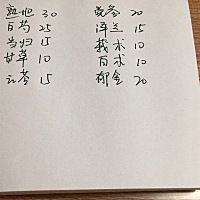 熟地 30
白芍 25
当归 15
甘草 10
云苓 15
党参 20
泽兰 15
莪术 10
白术 10
郁金 20